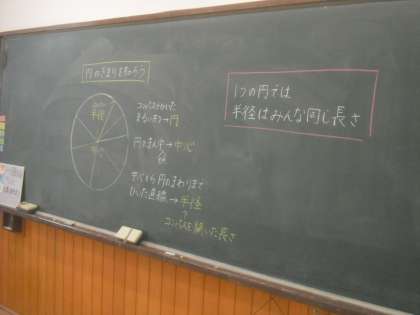 円のきまりを知ろう
半径
コンパスでかいた
まるい形→円
円のまん中→中心
中心から円のまわりまで
ひいた直線→半径
コンパスを開いた長さ
1つの円では
半径はみんな同じ長さ